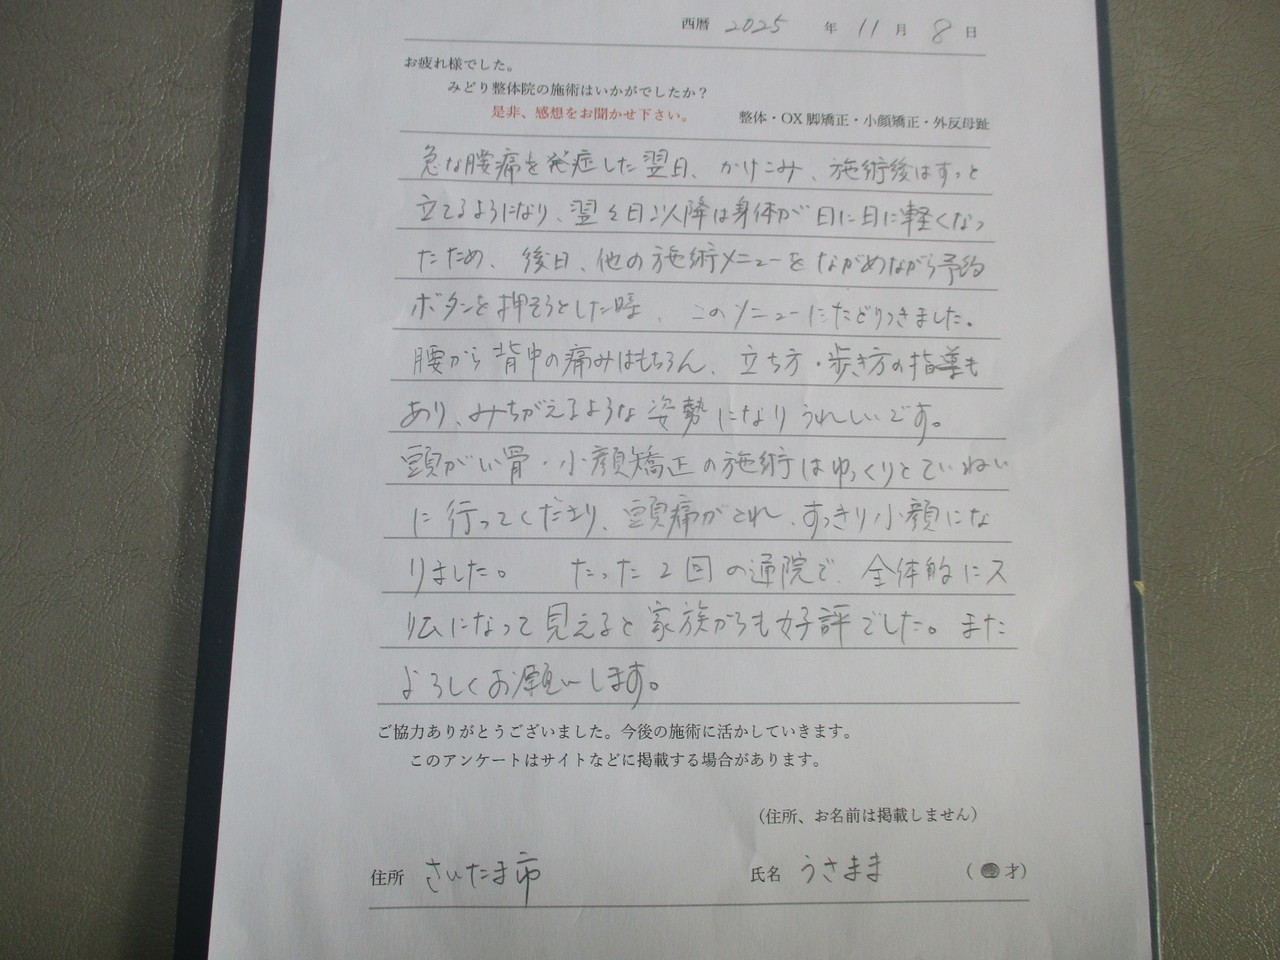 西暦 2025 年 11 月 8 日
お疲れ様でした。
みどり整体院の施術はいかがでしたか？
是非、感想をお聞かせ下さい。 整体・OX脚矯正・小顔矯正・外反母趾
急な腰痛を発症した翌日、かけこみ、施術後はすっと
立てるようになり、翌々日以降は身体が日に日に軽くなっ
たため、後日、他の施術メニューをながめながら予約
ボタンを押そうとした時、このメニューにたどりつきました。
腰から背中の痛みはもちろん、立ち方・歩き方の指導も
あり、みちがえるような姿勢になりうれしいです。
頭がい骨・小顔矯正の施術はゆっくりとていねい
に行ってくださり、頭痛がとれ、すっきり小顔にな
りました。 たった2回の通院で、全体的にス
リムになって見えると家族からも好評でした。また
よろしくお願いします。
ご協力ありがとうございました。今後の施術に活かしていきます。
このアンケートはサイトなどに掲載する場合があります。
（住所、お名前は掲載しません）
住所 さいたま市 氏名 うさまま （ 才）